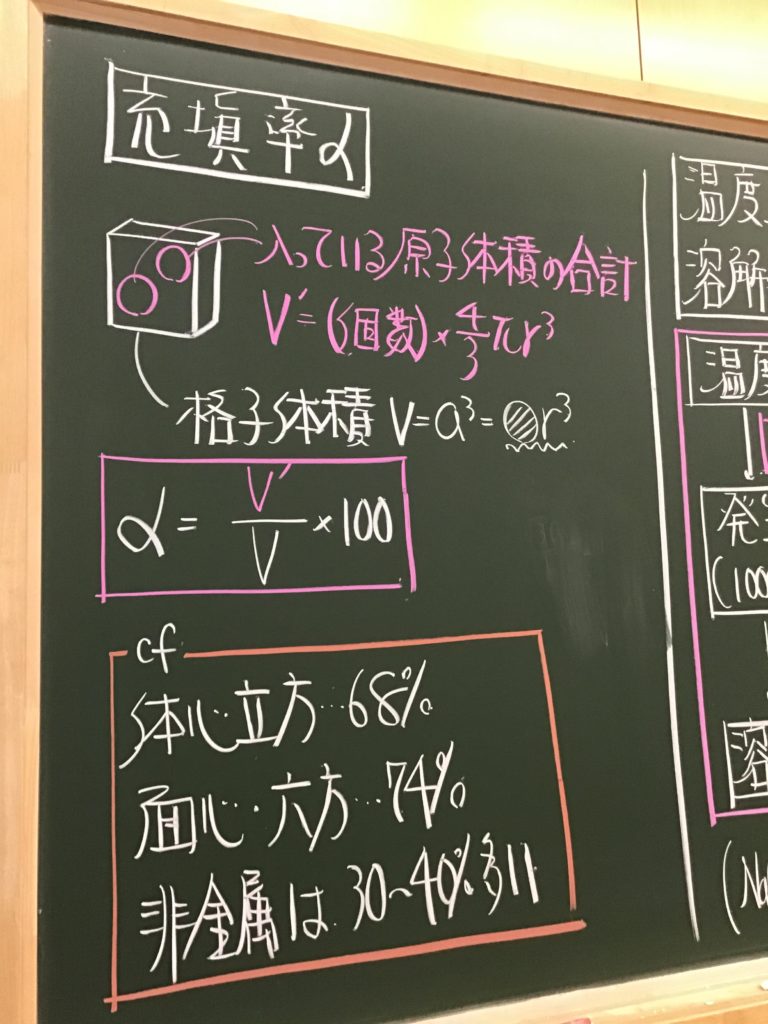 充填率α
入っている原子体積の合計
V'=(個数)×4/3πr³
格子体積 V=a³=r³
α = V'/V ×100
cf
体心立方…68%
面心・六方…74%
非金属は 30~40%多い
温度
溶解
温度
発
(100
溶
(Na